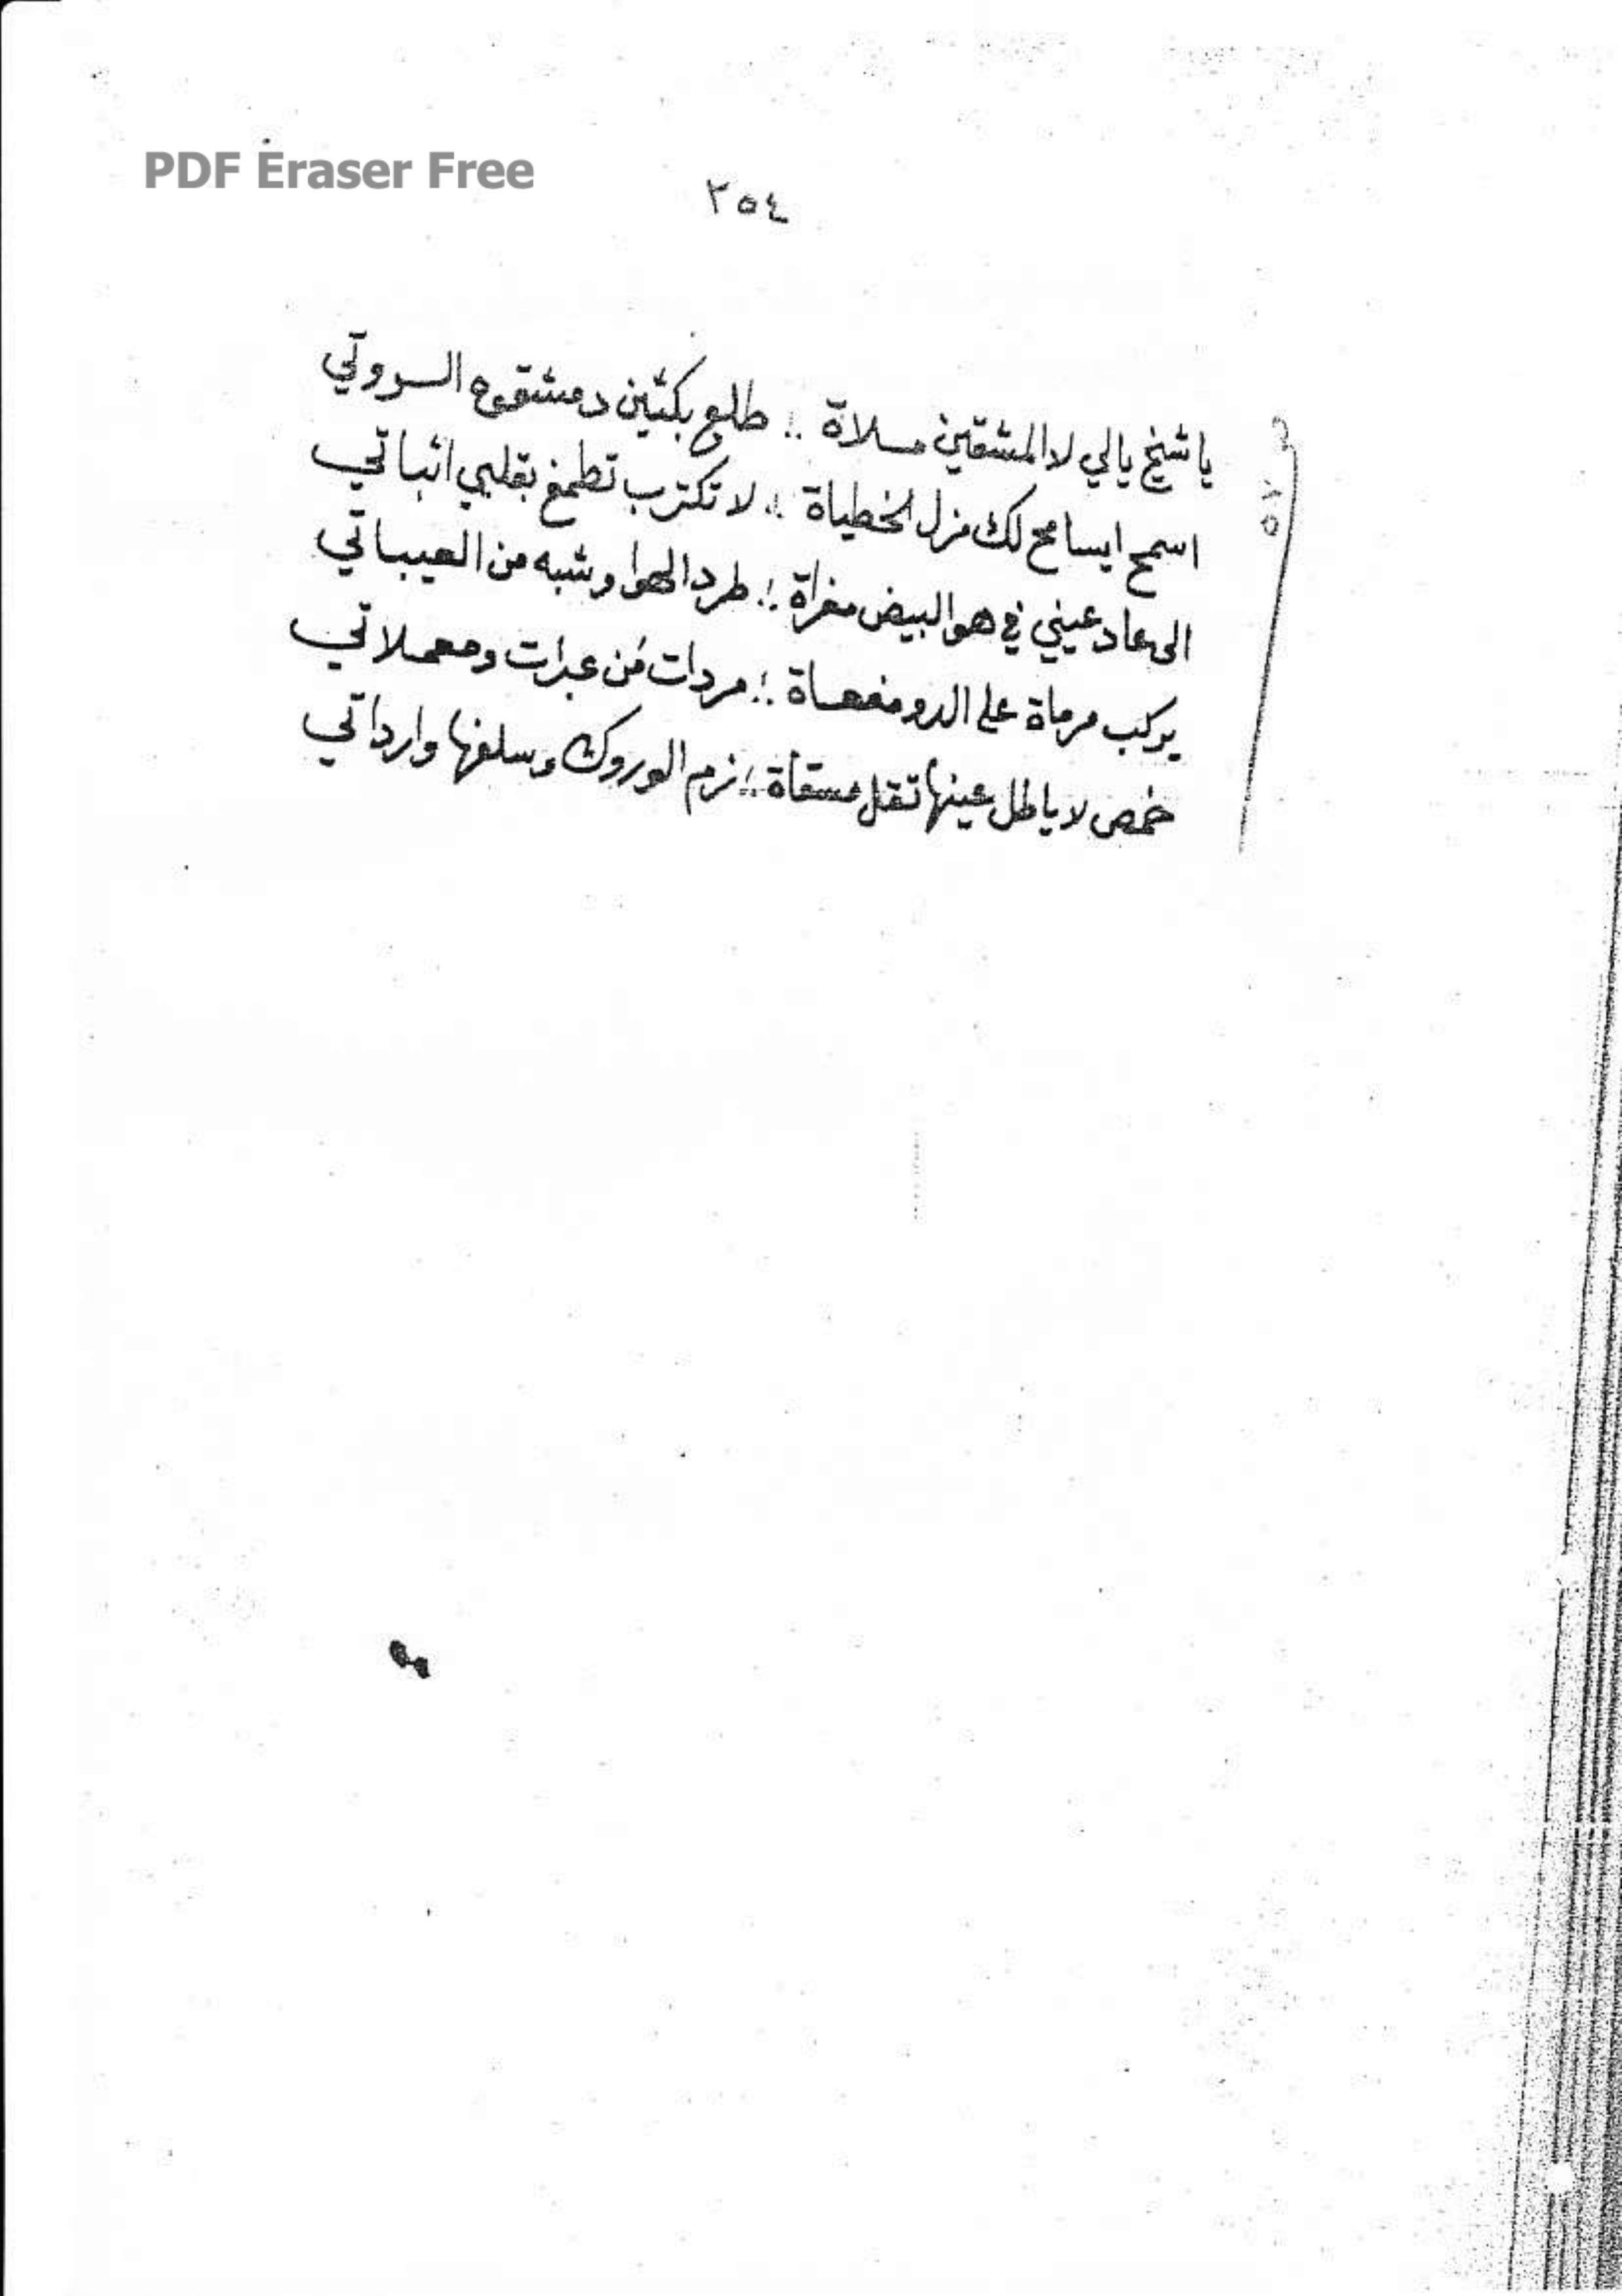 PDF Eraser Free
٢٥٤
ياشيخ يالي لا المشقين مسلاة ؛ طلع بكثين دمشقوه السروتي
اسمح ايسامح لك مزل الخطياة ؛ لا تكترب تطمغ بقلبي اثباتي
الى عاد عيني في هو البيض مغراة ؛ طرد الهوا وشبه من العيباتي
يركب مرماة على الدو مفعاة ؛ مردات من عبرات ومعملاتي
خمص لا ياطل عينها تقل مسقاة ؛ نزم الوروك وسلفها وارداتي